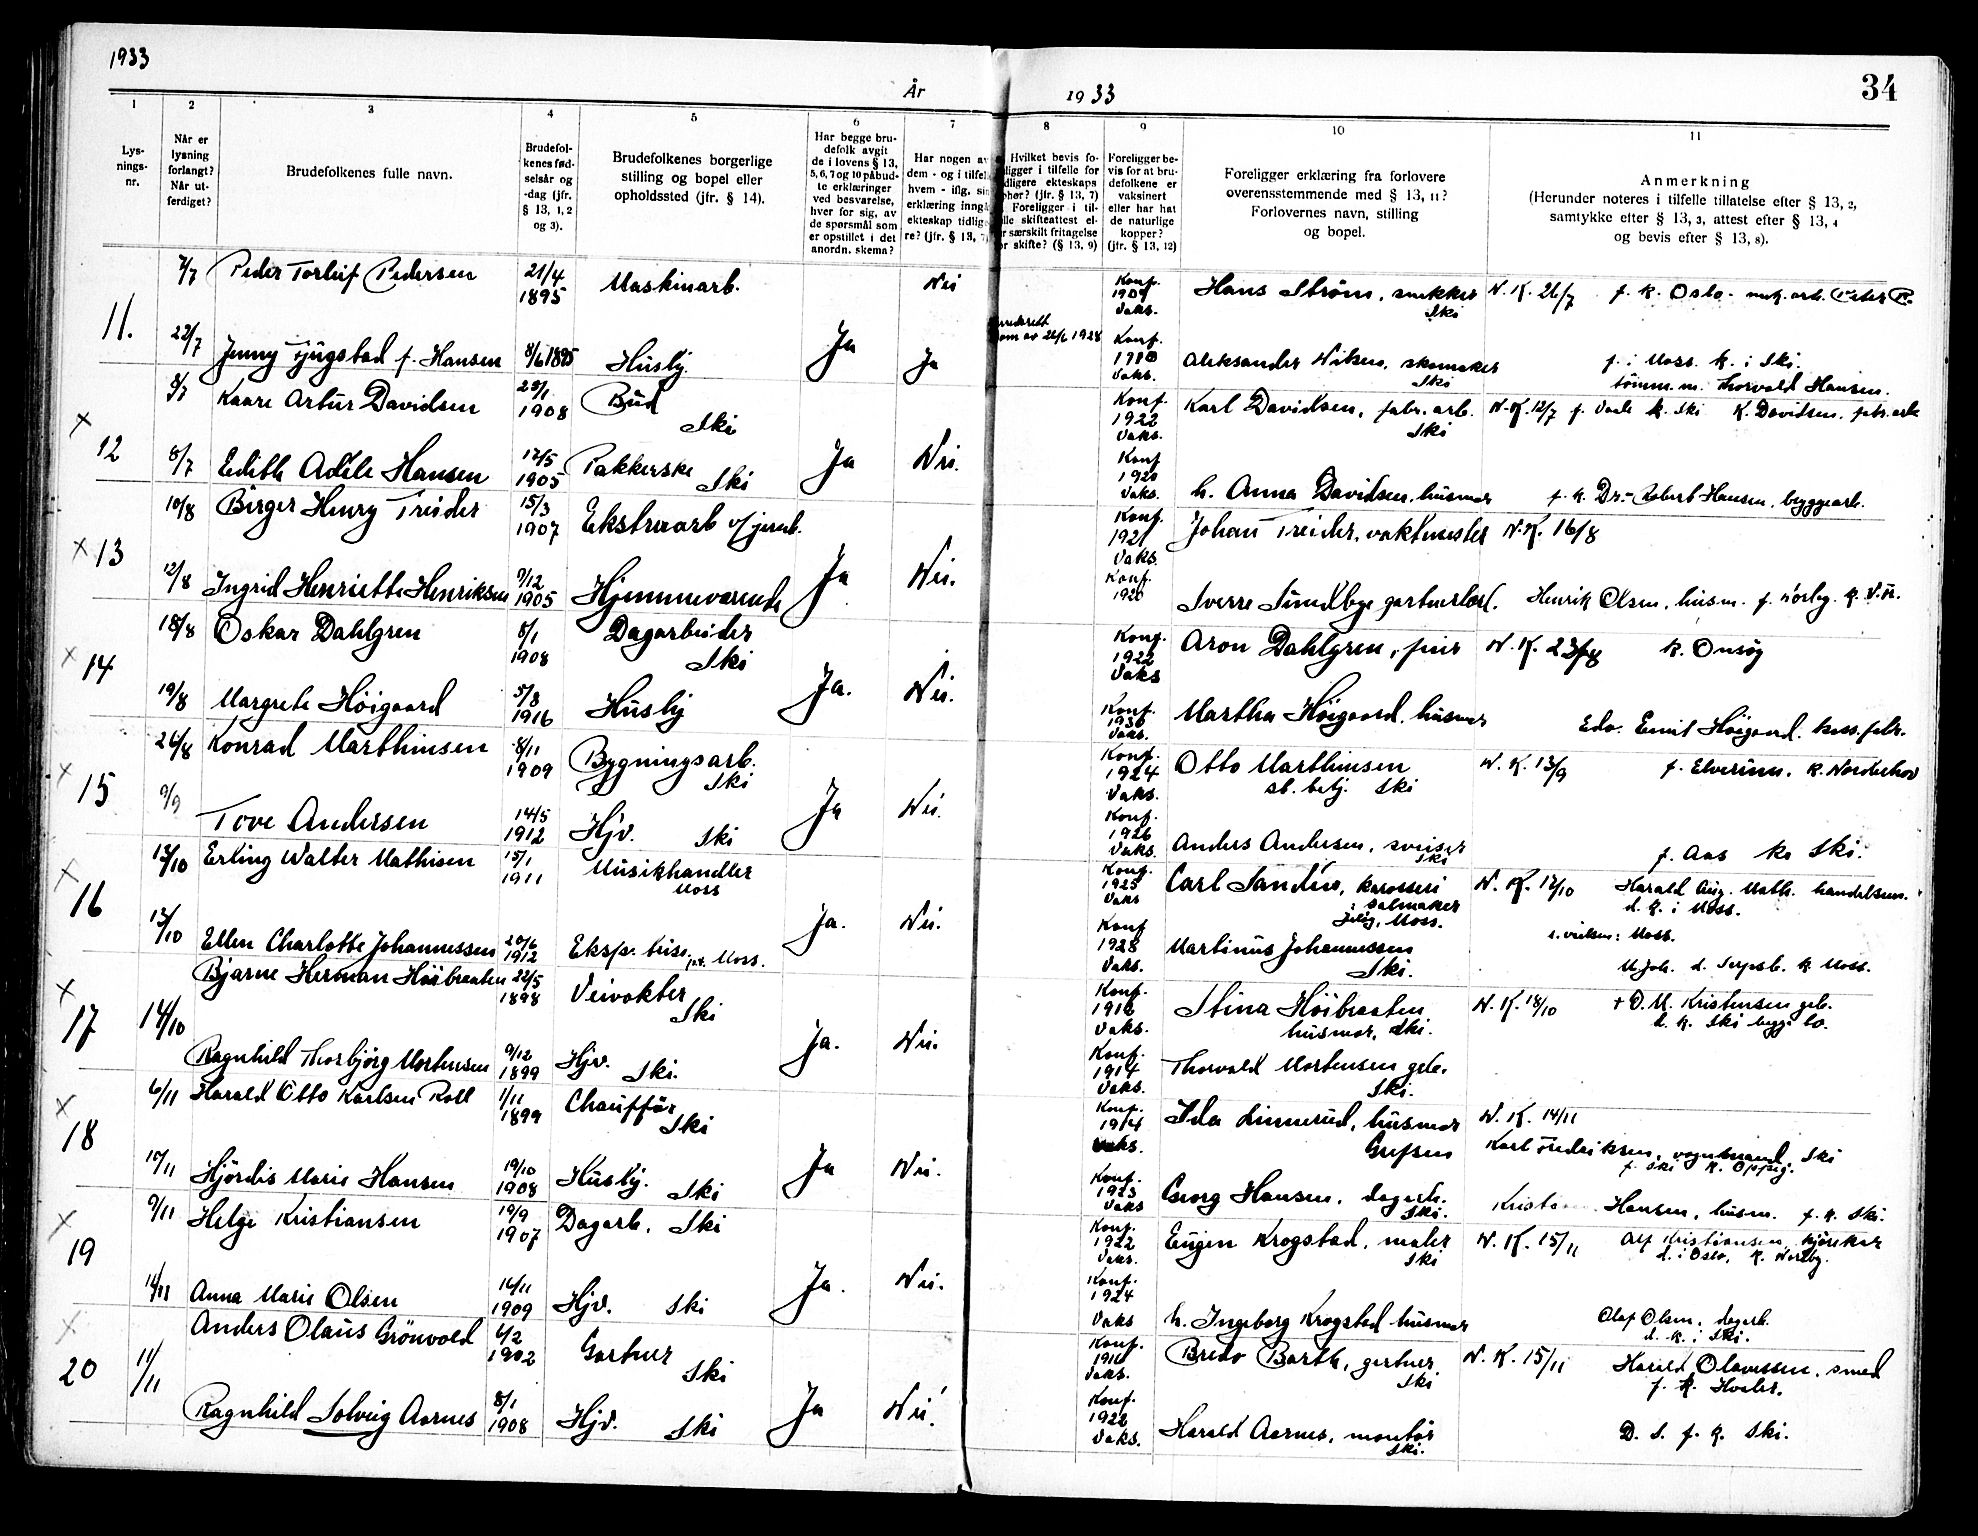 1933
År 1933
34
1
2
3
4
5
6
7
8
9
10
11
Lys-
nings-
nr.
Når er
lysning
forlangt?
Når ut-
ferdiget?
Brudefolkenes fulle navn.
Brudefol-
kenes fød-
selsår og
-dag (jfr.
§ 13, 1, 2
og 3).
Brudefolkenes borgerlige
stilling og bopel eller
opholdssted (jfr. § 14).
Har begge bru-
defolk avgit
de i lovens § 13,
5, 6, 7 og 10 påbud-
te erklæringer
ved besvarelse,
hver for sig, av
de spørsmål som
er opstillet i det
anordn. skema?
Har nogen av
dem - og i tilfel
hvem - iflg. sin
erklæring inngå
ekteskap tidlige
re? (jfr. § 13, 7)
Hvilket bevis fo-
ligger i tilfelle for
dligere ekteskaps
phør? (jfr. § 13, 7)
Foreligger i til-
lle skifteattest el-
r særskilt fritagelse
or skifte? (§ 13, 9)
Foreligger be-
vis for at bru-
defolkene er
vaksinert
eller har hat
de naturlige
kopper?
(jfr. § 13, 12)
Foreligger erklæring fra forlovere
overensstemmende med § 13, 11?
Forlovernes navn, stilling
og bopel.
Anmerkning
(Herunder noteres i tilfelle tillatelse efter § 13, 2,
samtykke efter § 13, 3, attest efter § 13, 4
og bevis efter § 13, 8).
11.
7/7 Peder Torleif Pedersen 21/4 1895 Maskinarb. Nei Konf. Vaks. Hans Strøm, snekker Ski N.K. 26/7 f. k. Oslo
22/7 Jenny f. Hansen 8/6 1895 Husby. Ja Ja 26/6 1928 Konf. Vaks. Aleksander Nilsen, skomaker Ski f. i Moss. k. i Ski.
Thorvald Hansen.
x 12
8/7 Kaare Artur Davidsen 1908 Bud Ski Konf. 1922 Vaks. Karl Davidsen, fabr. arb. Ski N.K. 12/7 k. Ski K. Davidsen, fabr. arb
8/7 Edith Adele Hansen 12/5 1905 Pakkerske Ski Ja Nei. Konf 1920 Vaks. h. Anna Davidsen, husmor Robert Hansen, byggearb.
x 13
10/8 Birger Henry Treider 15/3 1907 Ekstraarb v/ jernb. Konf. 1921 Vaks. Johan Treider, vaktmester N.K. 16/8
12/8 Ingrid Henriette Henriksen 9/12 1905 Hjemmeværende Ja Nei. Konf. 1920 Sverre Sundbye gartnerlærl. Henrik Olsen, husm.
x 14
18/8 Oskar Dahlgren 8/1 1908 Dagarbeider Ski Konf. 1922 Vaks Aron Dahlgren, N.K. 23/8 k. Onsøy
19/8 Margrete Höigaard 5/8 1916 Husby Ja. Nei. Konf. 1930 Vaks. Martha Höigaard, husmor Edv. Emil Höigaard,
x 15
26/8 Konrad Marthinsen 8/11 1909 Bygningsarb. Ski Konf. 1924 Vaks. Otto Marthinsen st. betj. Ski N.K. 13/9 f. Elverum, k. Norderhov
9/9 Tove Andersen 14/5 1912 Hjv. Ski Ja Nei. Konf. 1926 Vaks. Anders Andersen, sveiser Ski f. Aas k. Ski.
x 16
13/10 Erling Walter Mathisen 15/1 1911 Musikhandler Moss Konf. 1925 Vaks Carl Sandèn, karosseri
salmaker
Jeløy, Moss. N.K. 17/10 Harald Aug. Math. handelsm.
d. k. i Moss.
13/10 Ellen Charlotte Johannessen 20/6 1912 Eksp. trise, Moss. Ja. Nei. Konf 1928 Vaks. Martinus Johannessen Ski. Moss.
M. Joh. d. Sarpsb. k. Moss.
x 17
14/10 Bjarne Herman Höibraaten 22/5 1898 Veivokter Ski Konf. Vaks. Stina Höibraaten husmor, Ski. N.K. 18/10 Kristensen
d. k. Ski
Ragnhild Thorbjörg Mortensen 9/12 1899 Hjv. Ski. Ja. Nei. Konf. 1914 Vaks. Thorvald Mortensen Ski.
x 18
6/11 Harald Otto Karlsen Roll 1/11 1899 Chauffør Ski Konf. 1914 Vaks. Ida Linnerud, husmor Grefsen N.K. 14/11
Karl Fredriksen, vognmand, Ski
10/11 Hjördis Marie Hansen 19/10 1908 Husby. Ski Ja Nei. Konf. 1923 Vaks Georg Hansen, dagarb. Ski. Hansen, husm. f. k. Ski.
x 19
9/11 Helge Kristiansen 19/9 1907 Dagarb. Ski Konf. 1922 Vaks. Eugen Krogstad, maler Ski N.K. 15/11 Alf Kristiansen, kjörekar
d. i Oslo, k. Nordby.
14/11 Anna Marie Olsen 16/11 1909 Hjv. Ski Ja. Nei. Konf. 1924 Vaks h. Ingeborg Krogstad husmor Olaf Olsen, dagarb.
d. k. i Ski.
x 20
11/11 Anders Olaus Grönvold 6/2 1902 Gartner Ski Konf. Vaks. Bredo Barth, gartner, Ski N.K. 15/11 Harald Olaussen, smed
f. k. Hvaler.
Ragnhild Solveig Aarnes 8/1 1908 Hjv. Ski Ja Nei. Konf. 1922 Vaks. Harald Aarnes, montör Ski. D. S. f. k. Ski.